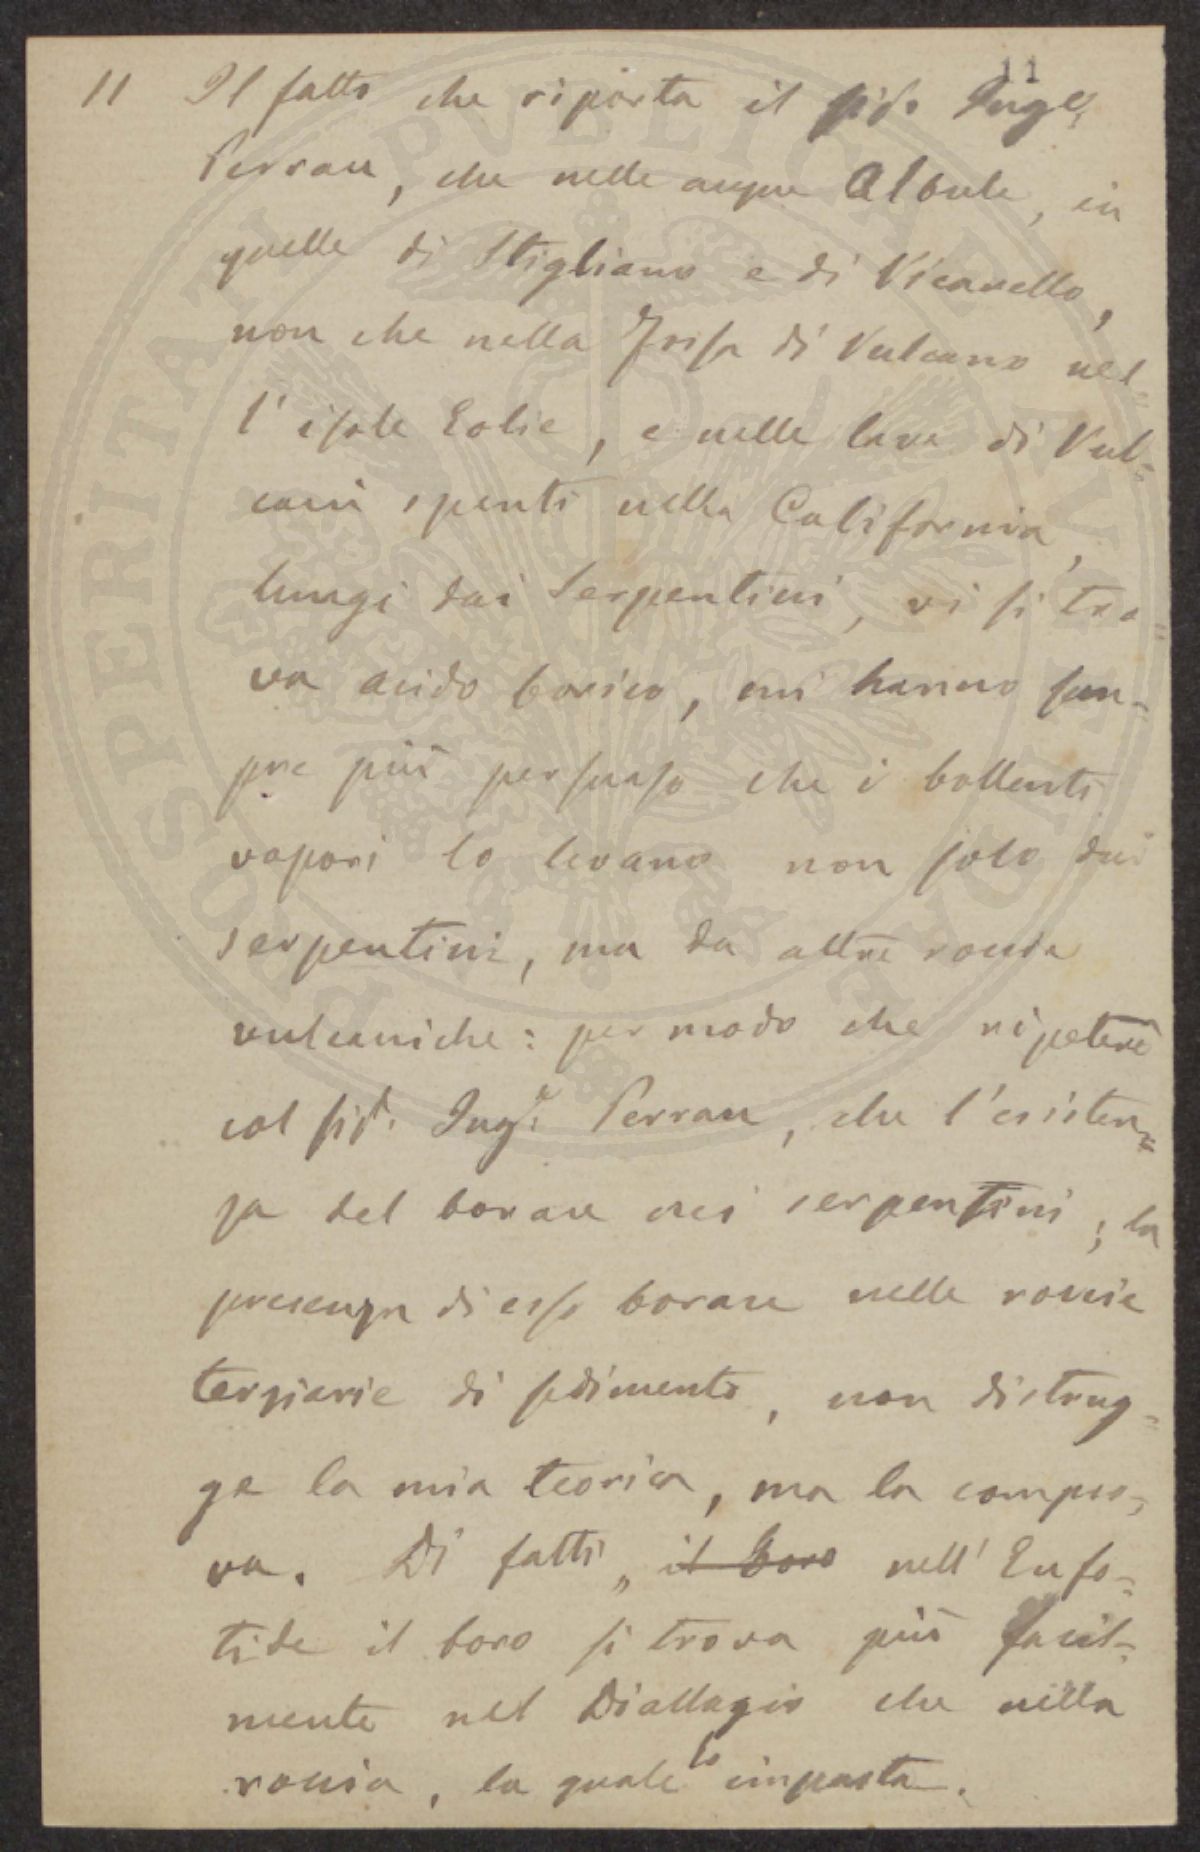 11
11 Il fatto che riporta il sigr. Inge
Perrau, che nelle acque Albule, in
quelle di Stigliano e di Vicarello,
non che nella Fossa di Vulcano nel-
l'isole Eolie, e nelle lave di Vul-
cani spenti nella California,
lungi dai Serpentini, vi si tro-
va acido borico, mi hanno sem-
pre più persuaso che i bollenti
vapori lo levano non solo dai
serpentini, ma da altre roccie
vulcaniche: per modo che ripeterò
col sigr. Inge: Perrau, che l'esisten=
za del borace nei serpentini; la
presenza di esso borace nelle roccie
terziarie di sedimento, non distrug-
ge la mia teorica, ma la compro-
va. Di fatti, il boro nell'Eufo-
tide il boro si trova più facil-
mente nel Diallagio che nella
roccia, la quale lo impasta.
PROSPERITATI PVBLICAE AVGENDAE